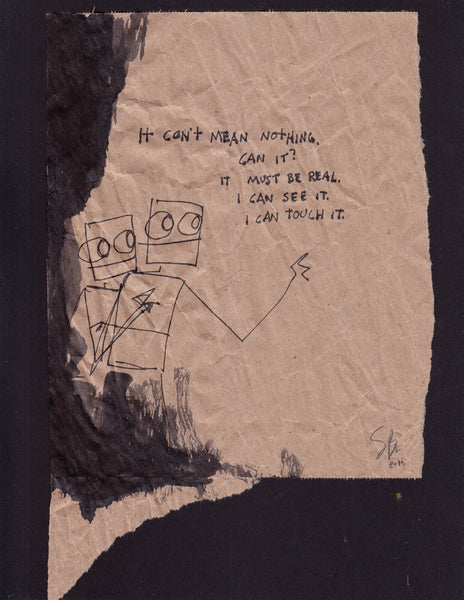 It can't mean nothing.
Can it?
It must be real.
I can see it.
I can touch it.
2015